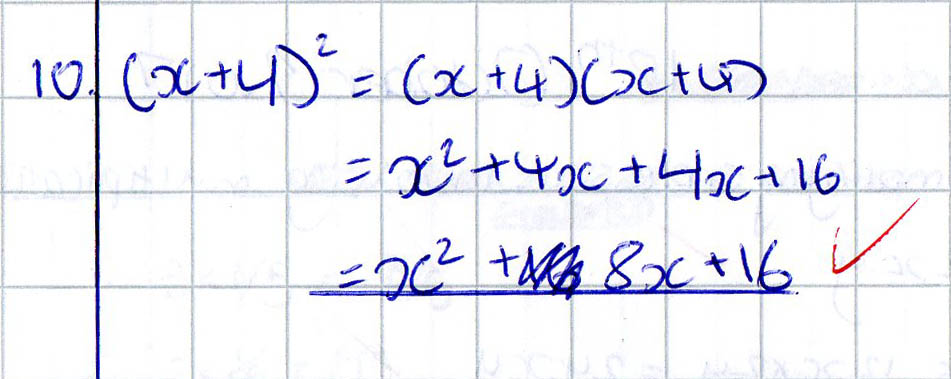 10. (x+4)² = (x+4)(x+4)
= x² + 4x + 4x + 16
= x² + 8x + 16 ✓